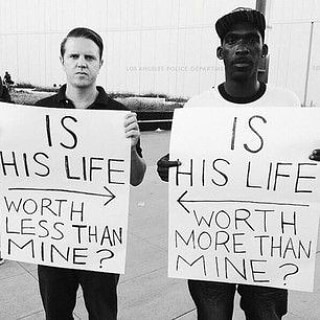 LOS ANGELES POLICE DEPARTM
IS
HIS LIFE
→
WORTH
LESS THAN
MINE?
IS
HIS LIFE
←
WORTH
MORE THAN
MINE?